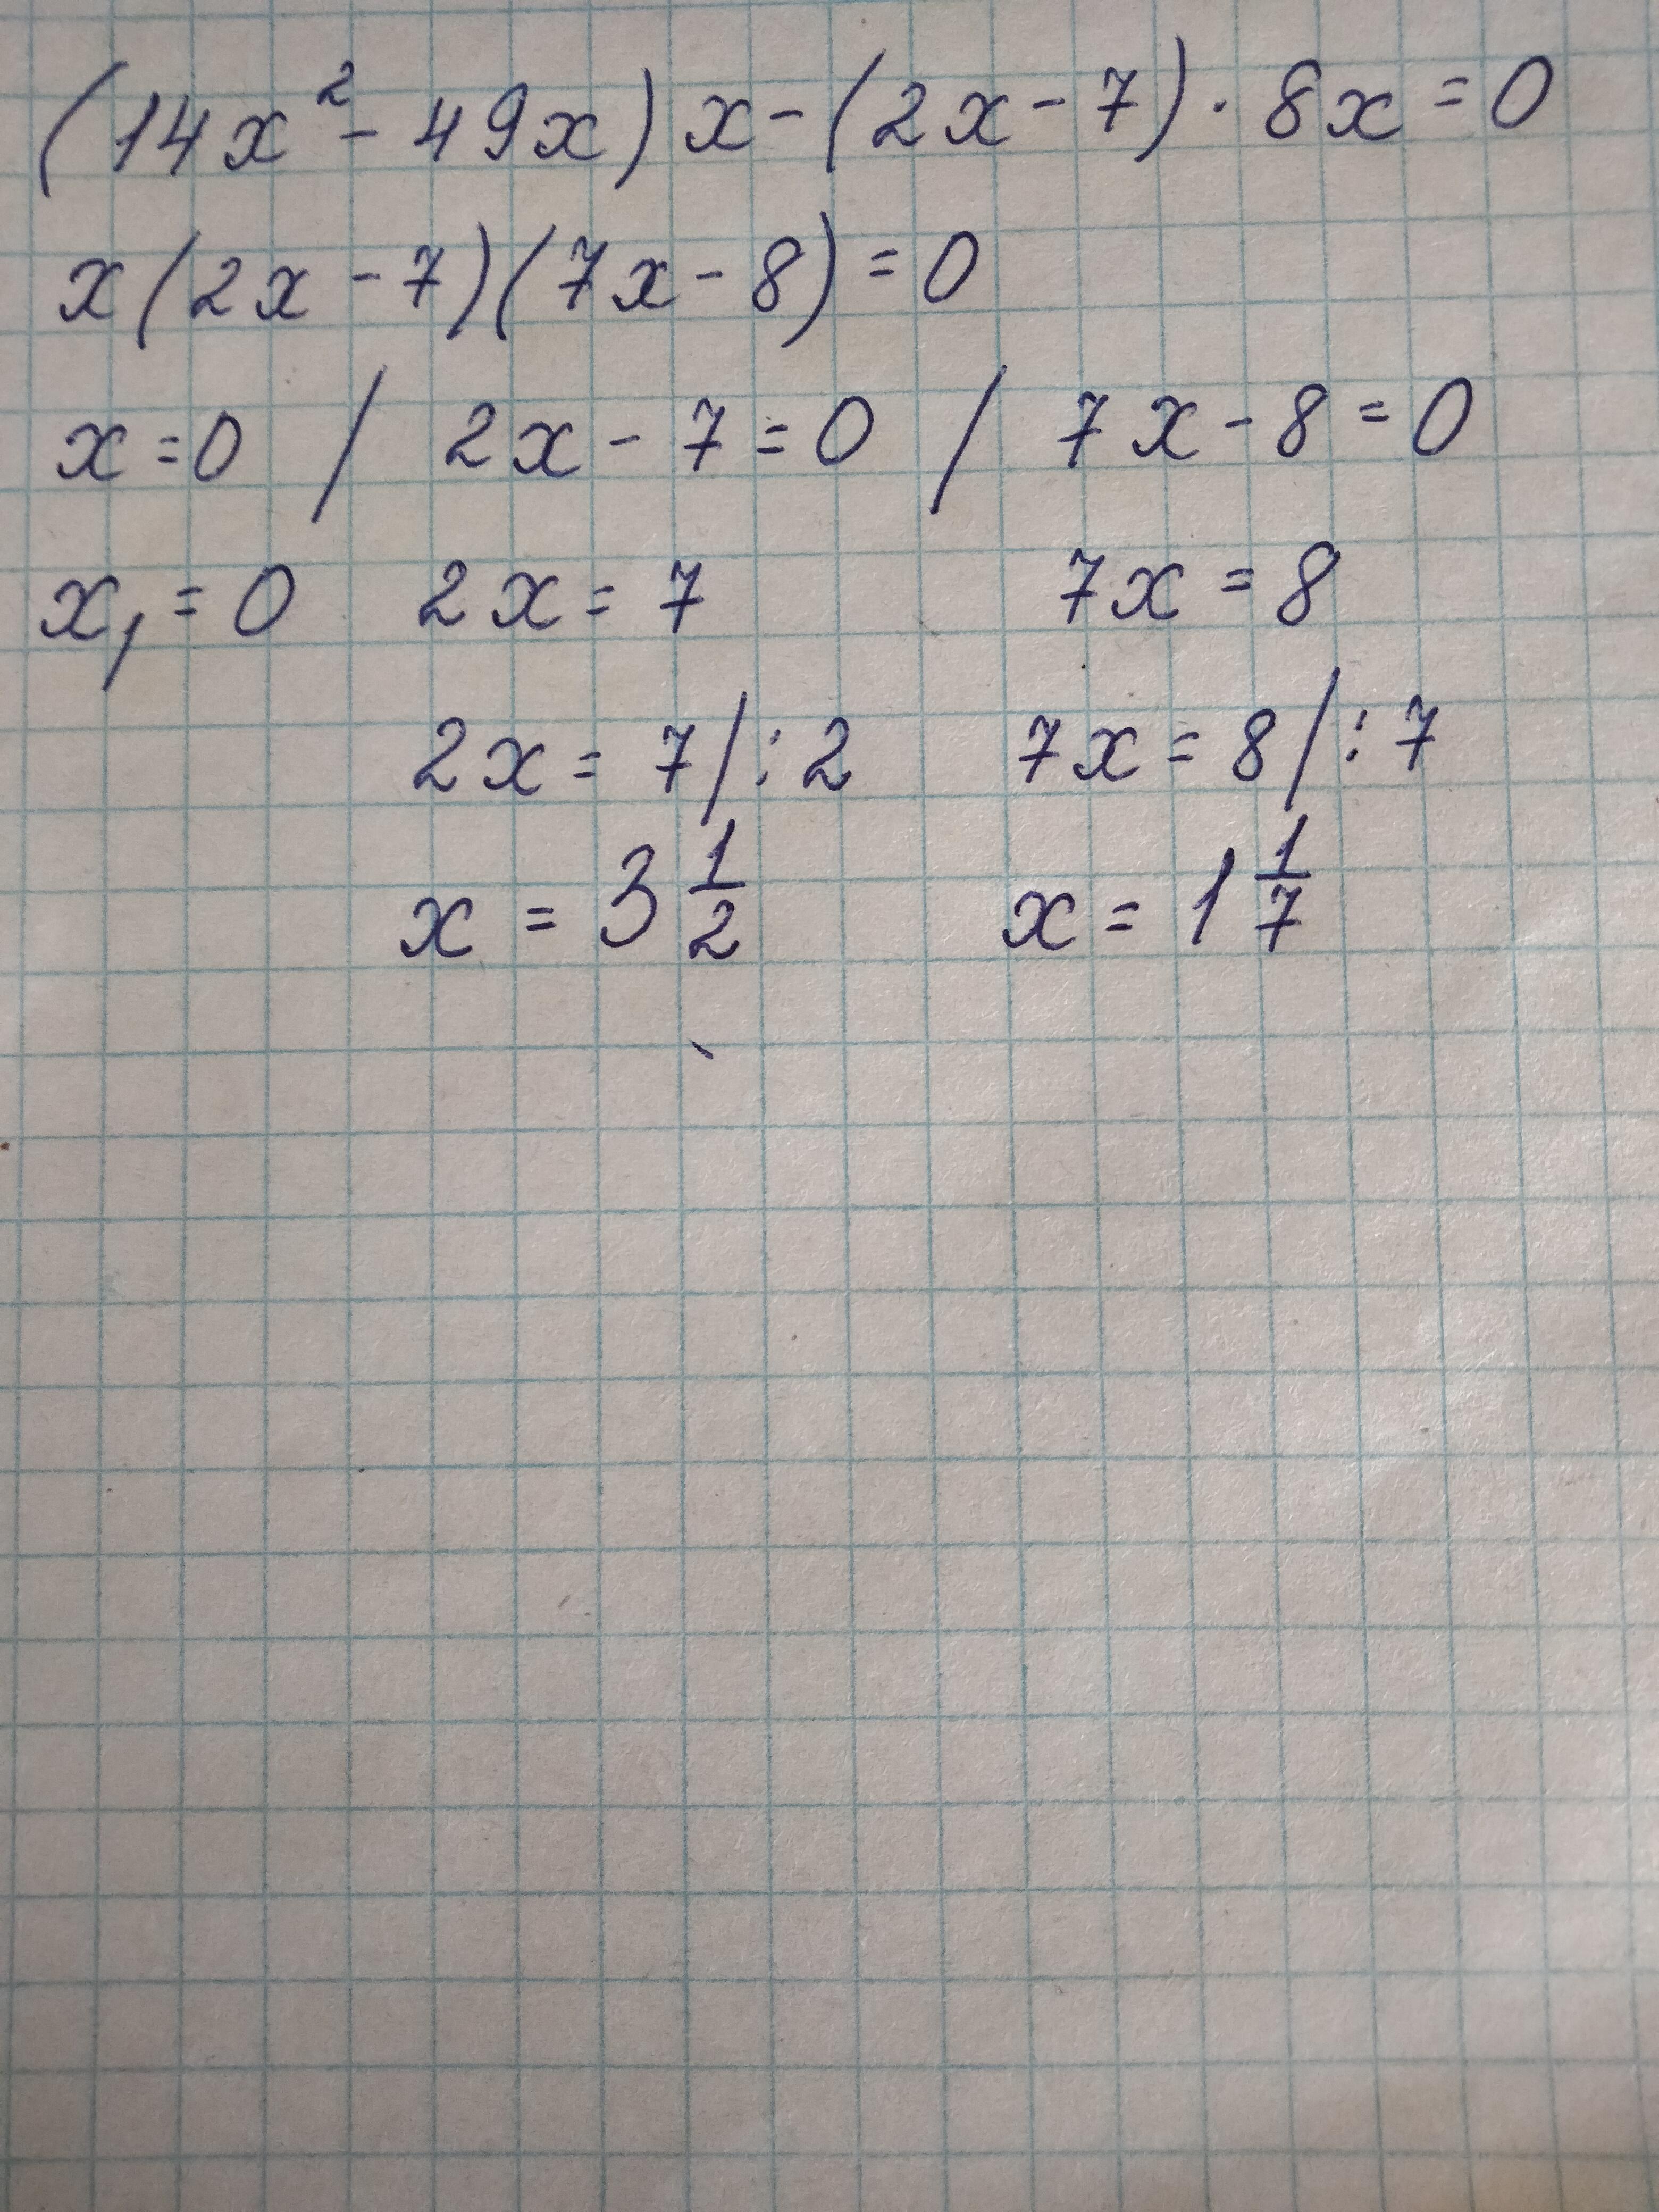 (14x² - 49x) x - (2x - 7) · 8x = 0
x(2x - 7)(7x - 8) = 0
x = 0 / 2x - 7 = 0 / 7x - 8 = 0
x₁ = 0 2x = 7 7x = 8
2x = 7 / : 2 7x = 8 / : 7
x = 3 1/2 x = 1 1/7